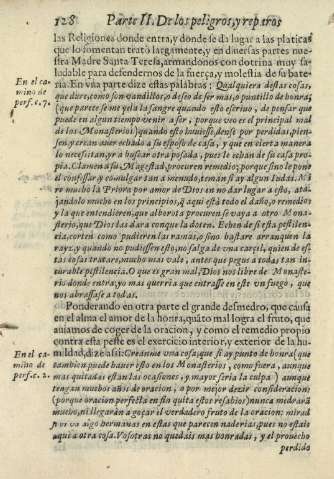 128 Parte II. De los peligros, y reparos
las Religiones donde entra, y donde se da lugar a las platicas
que lo fomentan trató largamente, y en diuersas partes nues-
tra Madre Santa Teresa, armandonos con dotrina muy sa-
ludable para defendernos de la fuerça, y molestia de su bate-
ria. En vna parte dize estas palabras: Qualquiera destas cosas,
En el ca-
mino de
perf. c. 7.
que dure, como son vandillos, o deseo de ser mas, o puntillo de honra
(que parece se me yela la sangre quando esto escriuo, de pensar que
puede en algun tiempo venir a ser, porque veo es el principal mal
de los Monasterios) quando esto huuiesse, dense por perdidas, pien-
sen, y crean auer echado a su esposo de casa, y que en cierta manera
lo necesitan, yr a buscar otra posada, pues le echan de su casa pro-
pia. Clamen a su Magestad, procuren remedio; porque sino le pone
el confessar y comulgar tan a menudo, teman si ay algun Iudas. Mi
re mucho la Priora por amor de Dios en no dar lugar a esto, ata-
jandolo mucho en los principios, q̃ aqui està todo el daño, o remedio;
y la que entendieren que alborota procuren se vaya a otro Mona-
sterio, que Dios las dara con que la doten. Echen de si esta pestilen-
cia, corten como pudieren las ramas, o sino bastare arranquen la
rayz, y quando no pudiessen esto, no salga de vna carcel, quien de es-
tas cosas tratare, mucho mas vale, antes que pegue a todas tan in-
curable pestilencia. O que es gran mal, Dios nos libre de Monaste-
rio donde entra, yo mas querria que entrasse en este vn fuego, que
nos abrassase a todas.
Ponderando en otra parte el grande desmedro, que causa
en el alma el amor de la honra, quã to mal logra el fruto, que
auiamos de coger de la oracion, y como el remedio propio
contra esta peste es el exercicio interior, y exterior de la hu-
En el ca-
mino de
perf. c. 2.
mildad, dize assi: Creanme vna cosa, que si ay punto de honra (que
tambien puede hauer esto en los Monasterios, como fuera, aunque
mas quitadas estan las ocasiones, y mayor seria la culpa) aunque
tengan muchos años de oracion, o por mejor dezir consideracion
(porque oracion perfecta en fin quita estos resabios) nunca medrarã
mucho, ni llegarán a goçar el verdadero fruto de la oracion: mirad
si os va algo hermanas en estas que parecen naderias, pues no estais
aqui a otra cosa. Vosotras no quedais mas honradas, y el prouecho
perdido